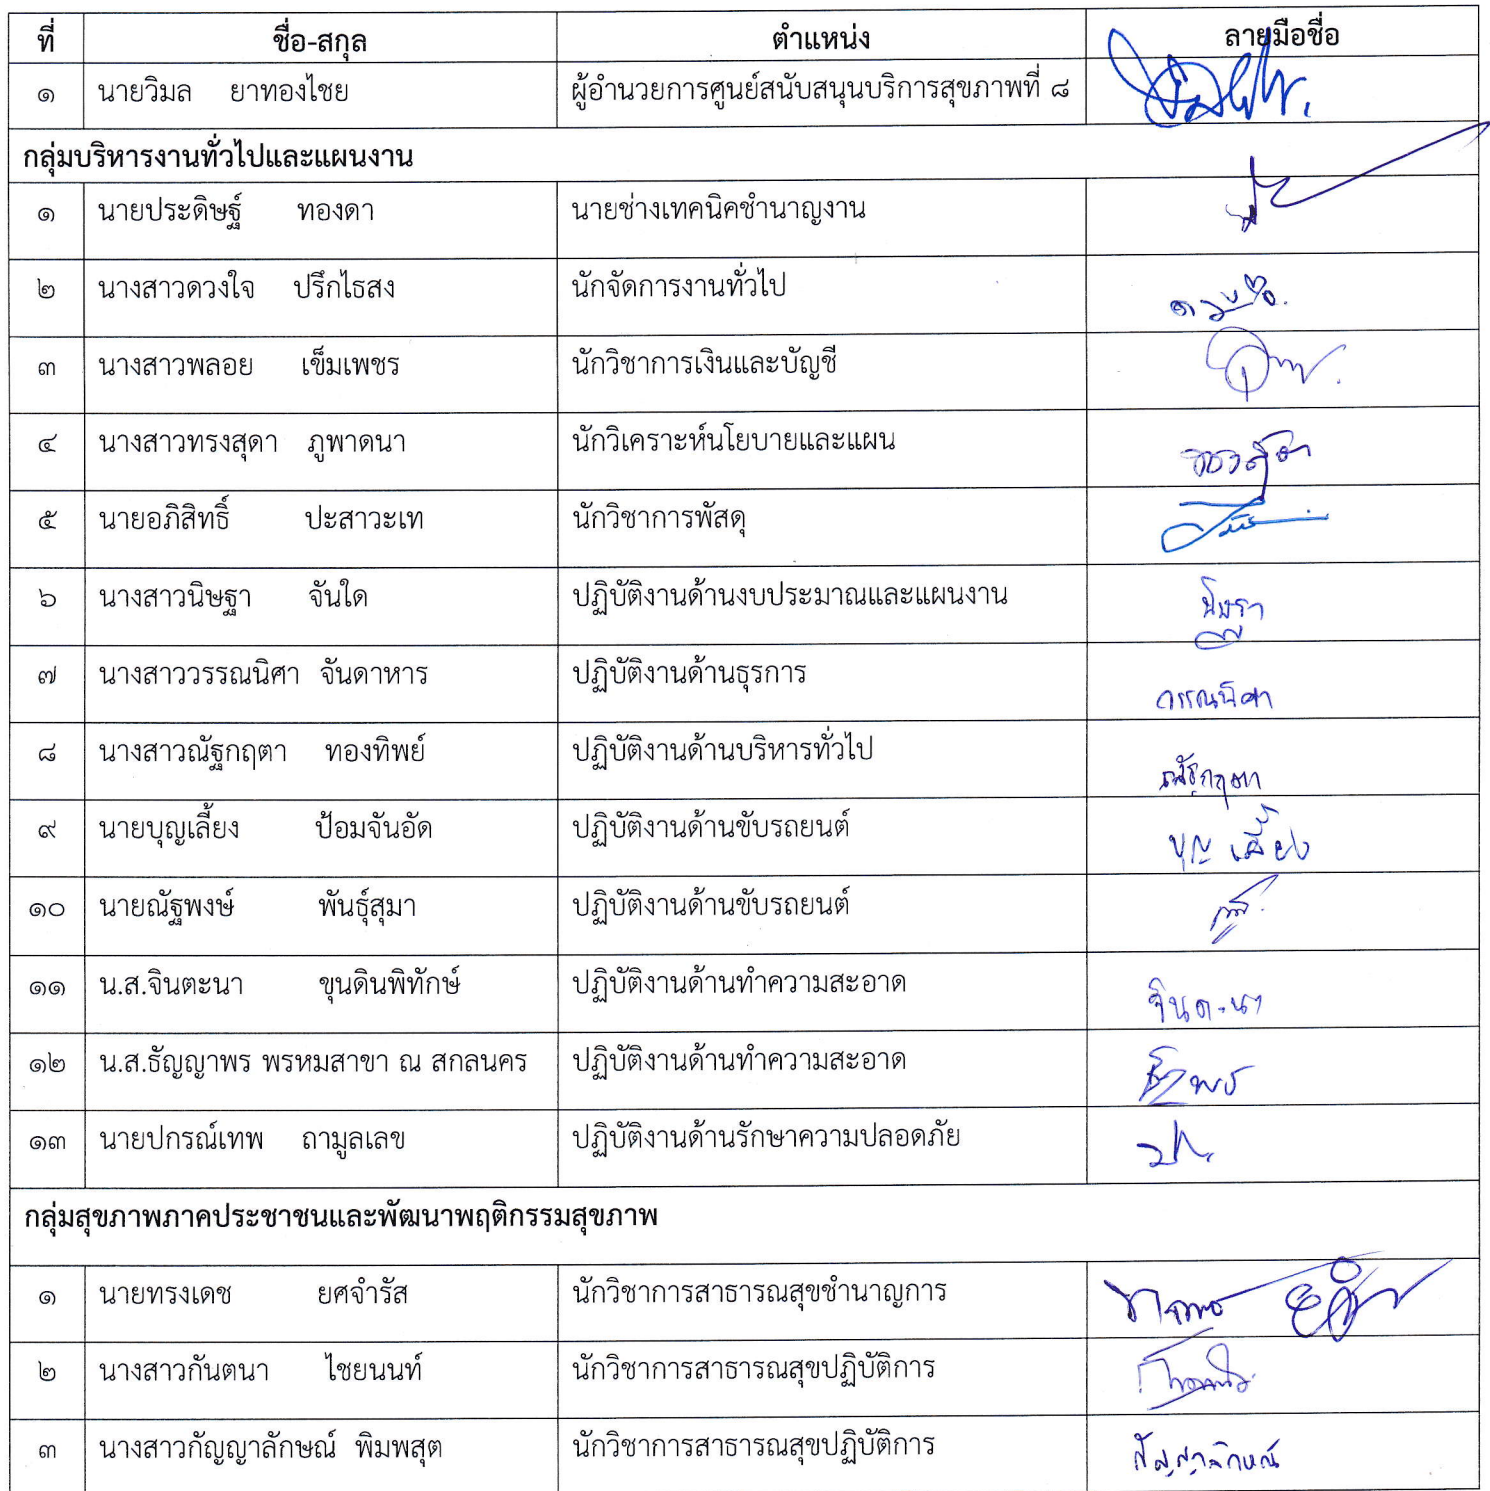 ที่ ชื่อ-สกุล ตำแหน่ง ลายมือชื่อ
๑ นายวิมล ยาทองไชย ผู้อำนวยการศูนย์สนับสนุนบริการสุขภาพที่ ๘
กลุ่มบริหารงานทั่วไปและแผนงาน
๑ นายประดิษฐ์ ทองดา นายช่างเทคนิคชำนาญงาน
๒ นางสาวดวงใจ ปรึกไธสง นักจัดการงานทั่วไป ดวงใจ
๓ นางสาวพลอย เข็มเพชร นักวิชาการเงินและบัญชี
๔ นางสาวทรงสุดา ภูพาดนา นักวิเคราะห์นโยบายและแผน ทรงสุดา
๕ นายอภิสิทธิ์ ปะสาวะเท นักวิชาการพัสดุ
๖ นางสาวนิษฐา จันใด ปฏิบัติงานด้านงบประมาณและแผนงาน นิษฐา
๗ นางสาววรรณนิศา จันดาหาร ปฏิบัติงานด้านธุรการ วรรณนิศา
๘ นางสาวณัฐกฤตา ทองทิพย์ ปฏิบัติงานด้านบริหารทั่วไป ณัฐกฤตา
๙ นายบุญเลี้ยง ป้อมจันอัด ปฏิบัติงานด้านขับรถยนต์ บุญเลี้ยง
๑๐ นายณัฐพงษ์ พันธุ์สุมา ปฏิบัติงานด้านขับรถยนต์
๑๑ น.ส.จินตะนา ขุนดินพิทักษ์ ปฏิบัติงานด้านทำความสะอาด จินตะนา
๑๒ น.ส.ธัญญาพร พรหมสาขา ณ สกลนคร ปฏิบัติงานด้านทำความสะอาด
๑๓ นายปกรณ์เทพ ถามูลเลข ปฏิบัติงานด้านรักษาความปลอดภัย
กลุ่มสุขภาพภาคประชาชนและพัฒนาพฤติกรรมสุขภาพ
๑ นายทรงเดช ยศจำรัส นักวิชาการสาธารณสุขชำนาญการ
๒ นางสาวกันตนา ไชยนนท์ นักวิชาการสาธารณสุขปฏิบัติการ
๓ นางสาวกัญญาลักษณ์ พิมพสุต นักวิชาการสาธารณสุขปฏิบัติการ กัญญาลักษณ์